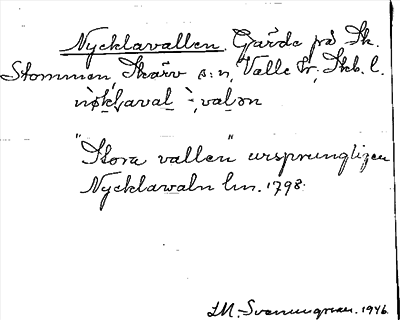 Nycklavallen, Gärde på St.
Stommen, Skärv s:n, Valle hr, Skb. l.
"Stora vallen" ursprungligen
Nycklawaln lm. 1798.
S.M. Svenungsson. 1946.